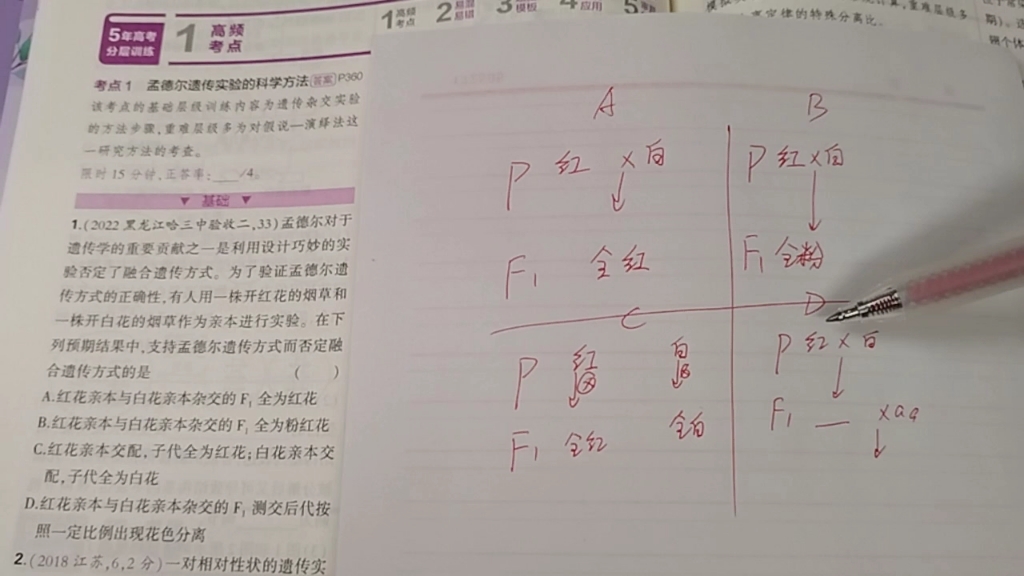 5年高考
分层训练
1 高频
考点
考点1 孟德尔遗传实验的科学方法 答案 P360
该考点的基础层级训练内容为遗传杂交实验
的方法步骤,重难层级多为对假说—演绎法这
一研究方法的考查。
限时15分钟,正答率:___/4。
▼ 基础 ▼
1.(2022黑龙江哈三中验收二,33)孟德尔对于
遗传学的重要贡献之一是利用设计巧妙的实
验否定了融合遗传方式。为了验证孟德尔遗
传方式的正确性,有人用一株开红花的烟草和
一株开白花的烟草作为亲本进行实验。在下
列预期结果中,支持孟德尔遗传方式而否定融
合遗传方式的是 ( )
A.红花亲本与白花亲本杂交的F₁全为红花
B.红花亲本与白花亲本杂交的F₁全为粉红花
C.红花亲本交配,子代全为红花;白花亲本交
配,子代全为白花
D.红花亲本与白花亲本杂交的F₁测交后代按
照一定比例出现花色分离
2.(2018江苏,6,2分)一对相对性状的遗传实
1 高频
考点
2
3 模板
4 应用
5
定律的特殊分离比。
A
P 红 × 白
F₁ 全红
B
P 红×白
F₁ 全粉
C
P 红 白
⊗ ⊗
F₁ 全红 全白
D
P 红×白
F₁ — ×aa